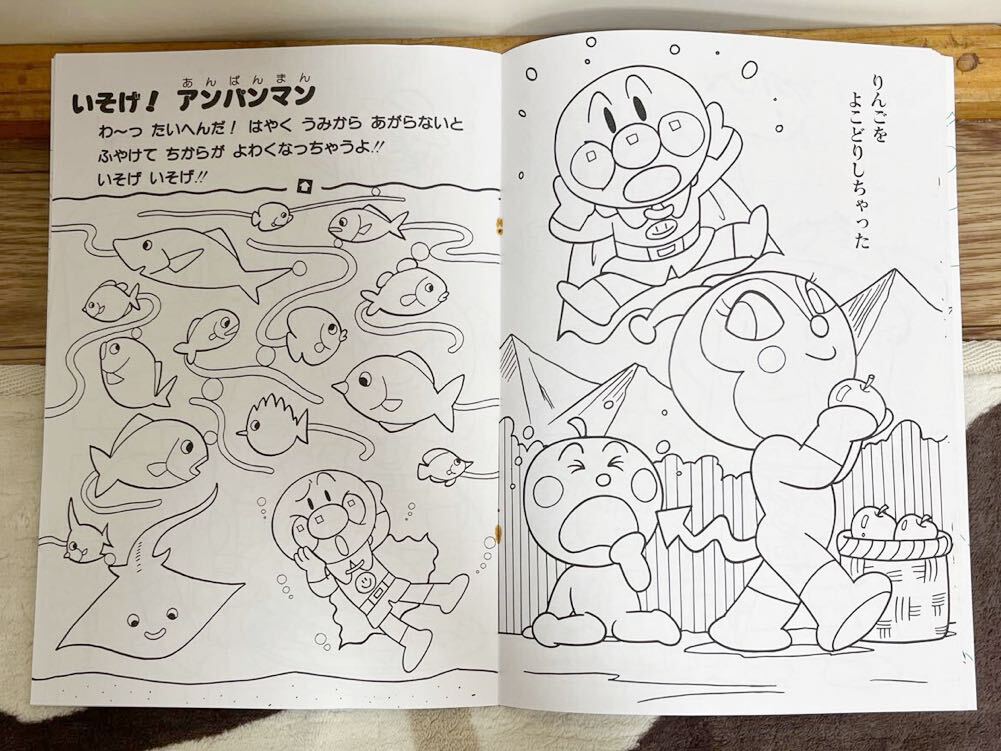 あんぱんまん
いそげ! アンパンマン
わ〜っ たいへんだ! はやく うみから あがらないと
ふやけて ちからが よわくなっちゃうよ!!
いそげ いそげ!!
りんごを
よこどりしちゃった